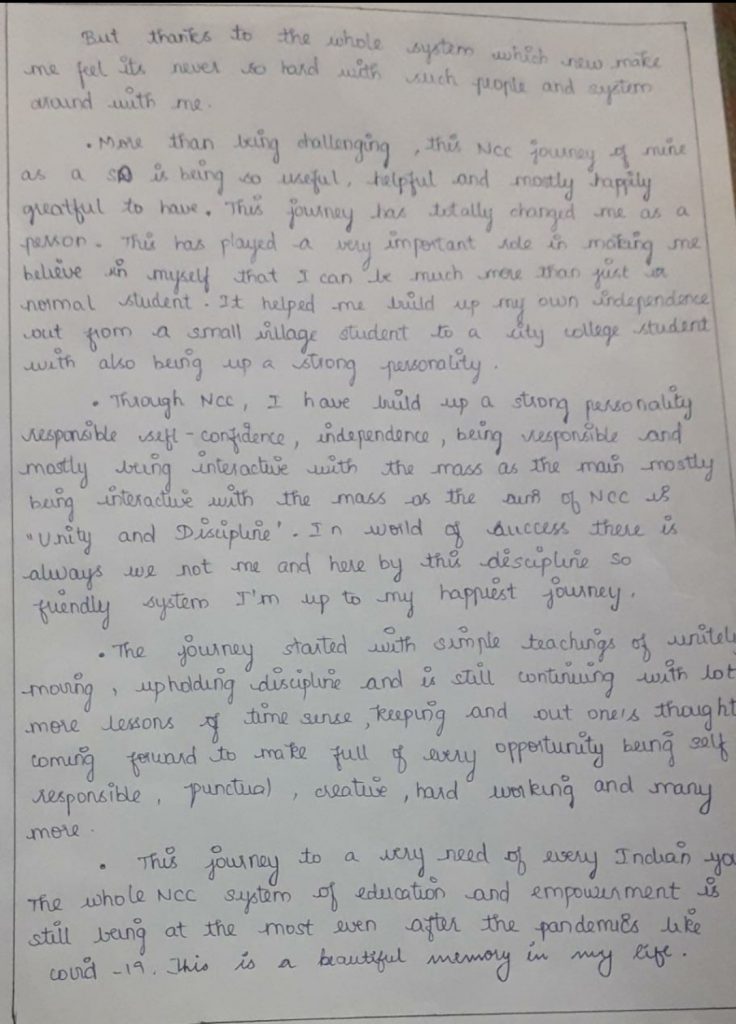 But thanks to the whole system which new make
me feel its never so hard with such people and system
around with me.
• More than being challenging, this NCC journey of mine
as a SD is being so useful, helpful and mostly happily
greatful to have. This journey has totally changed me as a
person. This has played a very important role in making me
believe in myself that I can be much more than just a
normal student. It helped me build up my own independence
out from a small village student to a city college student
with also being up a strong personality.
• Through NCC, I have build up a strong personality
responsible self-confidence, independence, being responsible and
mostly being interactive with the mass as the main mostly
being interactive with the mass as the of NCC is
"Unity and Discipline". In world of success there is
always we not me and here by this discipline so
friendly system I'm up to my happiest journey.
• The journey started with simple teachings of unitely
moving, upholding discipline and is still continuing with lot
more lessons of time sense, keeping and out one's thought
coming forward to make full of every opportunity being self
responsible, punctual, creative, hard working and many
more.
• This journey to a very need of every Indian yo
The whole NCC system of education and empowerment is
still being at the most even after the pandemics like
covid -19. This is a beautiful memory in my life.